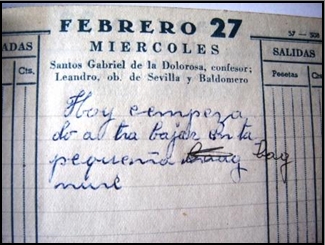 FEBRERO 27
57 - 308
MIERCOLES
ADAS
SALIDAS
Santos Gabriel de la Dolorosa, confesor;
Leandro, ob. de Sevilla y Baldomero
Cts.
Pesetas
Hoy empeza
do a tra bajar en la
pequeña Bag
nure